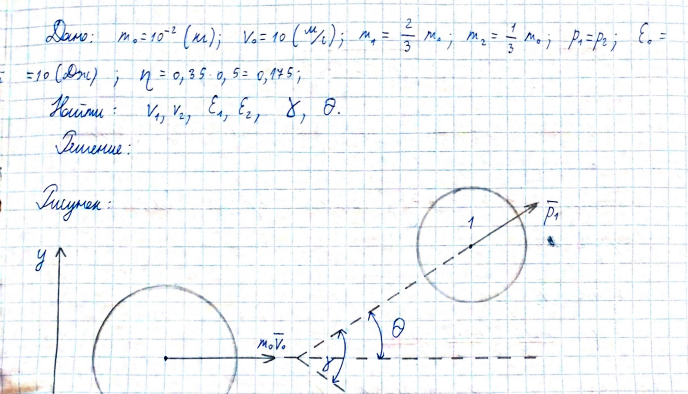 Дано: m₀=10⁻² (кг); v₀=10 (м/с); m₁ = 2/3 m₀; m₂ = 1/3 m₀; p₁=p₂; ℰ₀ =
=10 (Дж); η = 0,35·0,5=0,175;
Найти: v₁, v₂, ℰ₁, ℰ₂, γ, θ.
Решение:
Рисунок:
1
p̄₁
y
m₀v̄₀
θ
γ